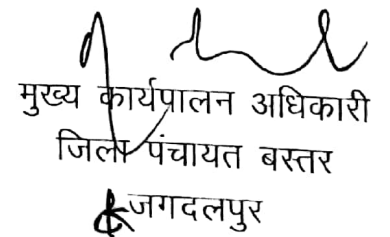 मुख्य कार्यपालन अधिकारी
जिला पंचायत बस्तर
जगदलपुर